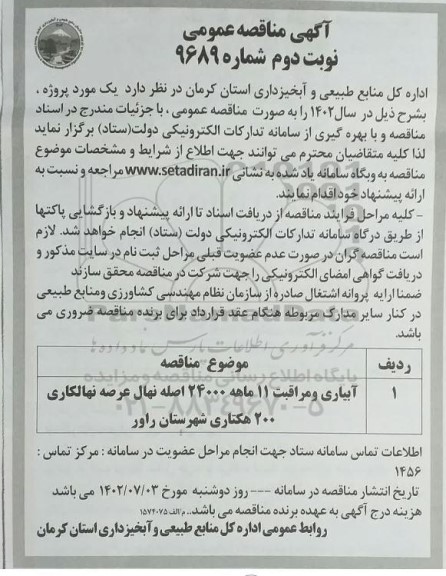 آگهی مناقصه عمومی
نوبت دوم شماره ۹۶۸۹
اداره کل منابع طبیعی و آبخیزداری استان کرمان در نظر دارد یک مورد پروژه ،
بشرح ذیل در سال۱۴۰۲ را به صورت مناقصه عمومی ، با جزئیات مندرج در اسناد
مناقصه و با بهره گیری از سامانه تدارکات الکترونیکی دولت(ستاد) برگزار نماید
لذا کلیه متقاضیان محترم می توانند جهت اطلاع از شرایط و مشخصات موضوع
مناقصه به وبگاه سامانه یاد شده به نشانی www.setadiran.ir مراجعه و نسبت به
ارائه پیشنهاد خود اقدام نمایند.
- کلیه مراحل فرایند مناقصه از دریافت اسناد تا ارائه پیشنهاد و بازگشایی پاکتها
از طریق درگاه سامانه تدارکات الکترونیکی دولت (ستاد) انجام خواهد شد. لازم
است مناقصه گران در صورت عدم عضویت قبلی مراحل ثبت نام در سایت مذکور و
دریافت گواهی امضای الکترونیکی را جهت شرکت در مناقصه محقق سازند
ضمنا ارایه پروانه اشتغال صادره از سازمان نظام مهندسی کشاورزی ومنابع طبیعی
در کنار سایر مدارک مربوطه هنگام عقد قرارداد برای برنده مناقصه ضروری می
باشد.
ردیف موضوع مناقصه
۱ آبیاری ومراقبت ۱۱ ماهه ۲۴۰۰۰ اصله نهال عرصه نهالکاری
۲۰۰ هکتاری شهرستان راور
اطلاعات تماس سامانه ستاد جهت انجام مراحل عضویت در سامانه : مرکز تماس :
۱۴۵۶
تاریخ انتشار مناقصه در سامانه --- روز دوشنبه مورخ ۱۴۰۲/۰۷/۰۳ می باشد
هزینه درج آگهی به عهده برنده مناقصه می باشد.. م/الف ۱۵۷۴۰۷۵
روابط عمومی اداره کل منابع طبیعی و آبخیزداری استان کرمان